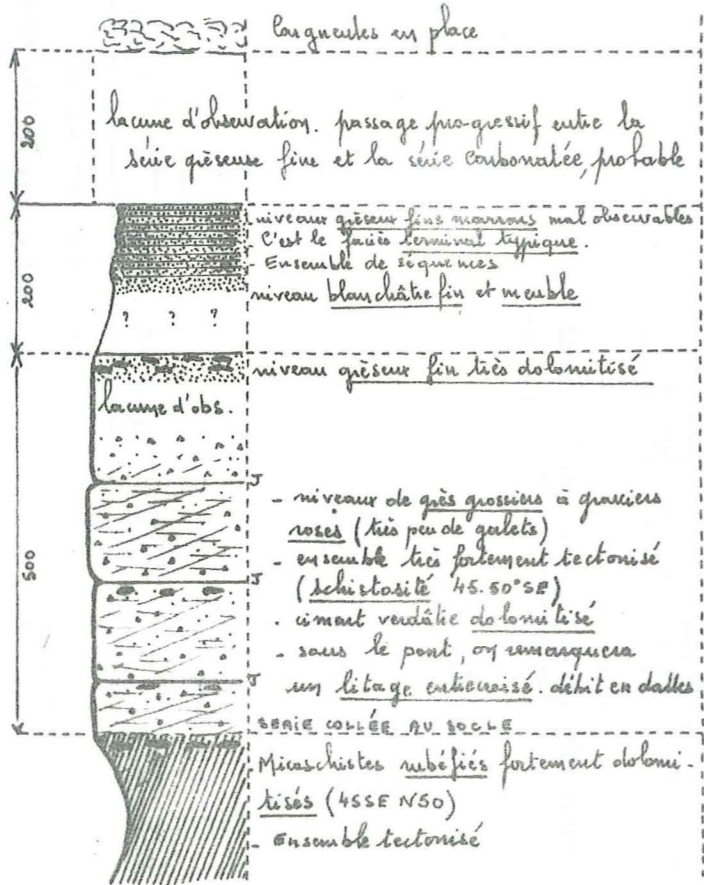 Cargneules en place
200
lacune d'observation. passage progressif entre la
série gréseuse fine et la série carbonatée, probable
200
- niveaux gréseux fins marrons mal observables
- C'est le faciès terminal typique.
- Ensemble de séquences
niveau blanchâtre fin et meuble
? ? ?
niveau gréseux fin très dolomitisé
lacune d'obs.
J
500
- niveaux de grès grossiers à graviers
roses (très peu de galets)
- ensemble très fortement tectonisé
(schistosité 45.50°SE)
J
- ciment verdâtre dolomitisé
- sous le pont, on remarquera
un litage entrecroisé. débit en dalles
J
SERIE COLLÉE AU SOCLE
- Micaschistes rubéfiés fortement dolomi-
tisés (45SE N50)
- Ensemble tectonisé